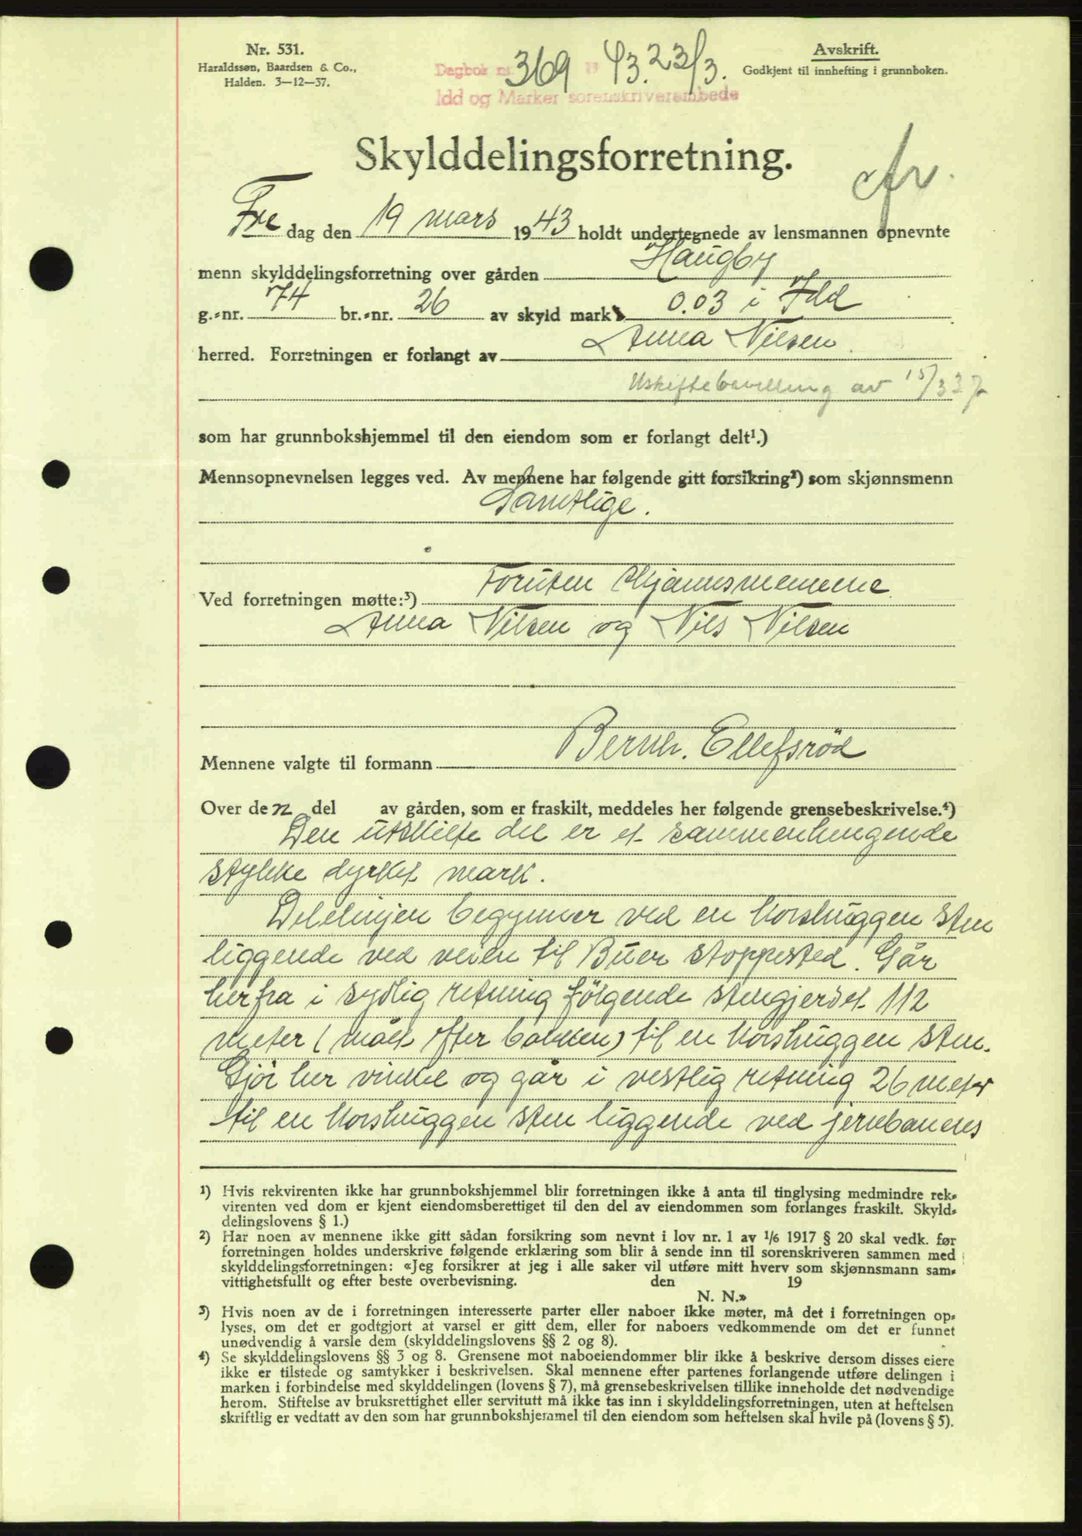 Nr. 531.
Haraldssøn, Baardsen & Co.,
Halden. 3—12—37.
Dagbok nr. 369 19 43. 23/3.
Idd og Marker sorenskriverembede
Avskrift.
Godkjent til innhefting i grunnboken.
Skylddelingsforretning.
Fre dag den 19 mars 1943 holdt undertegnede av lensmannen opnevnte
menn skylddelingsforretning over gården Haugby
g.-nr. 74 br.-nr. 26 av skyld mark 0.03 i Idd
herred. Forretningen er forlangt av Anna Nilsen
Uskiftebevilling av 15/3 37
som har grunnbokshjemmel til den eiendom som er forlangt delt¹.)
Mennsopnevnelsen legges ved. Av mennene har følgende gitt forsikring²) som skjønnsmenn
Samtlige.
Ved forretningen møtte:³) Foruten skjønnsmennene
Anna Nilsen og Nils Nilsen
Mennene valgte til formann Bernh. Ellefsrød
Over den del av gården, som er fraskilt, meddeles her følgende grensebeskrivelse.⁴)
Den utskilte del er et sammenhengende
stykke dyrket mark.
Delelinjen begynner ved en korshuggen sten
liggende ved veien til Buer stoppested. Går
herfra i sydlig retning følgende stengjerdet 112
meter (målt efter bakken) til en korshuggen sten.
Gjør her vinkel og går i vestlig retning 26 meter
til en korshuggen sten liggende ved jernbanens
¹) Hvis rekvirenten ikke har grunnbokshjemmel blir forretningen ikke å anta til tinglysing medmindre rek-
virenten ved dom er kjent eiendomsberettiget til den del av eiendommen som forlanges fraskilt. Skyld-
delingslovens § 1.)
²) Har noen av mennene ikke gitt sådan forsikring som nevnt i lov nr. 1 av 1/6 1917 § 20 skal vedk. før
forretningen holdes underskrive følgende erklæring som blir å sende inn til sorenskriveren sammen med
skylddelingsforretningen: «Jeg forsikrer at jeg i alle saker vil utføre mitt hverv som skjønnsmann sam-
vittighetsfullt og efter beste overbevisning. den 19
N. N.»
³) Hvis noen av de i forretningen interesserte parter eller naboer ikke møter, må det i forretningen op-
lyses, om det er godtgjort at varsel er gitt dem, eller for naboers vedkommende om det er funnet
unødvendig å varsle dem (skylddelingslovens §§ 2 og 8).
⁴) Se skylddelingslovens §§ 3 og 8. Grensene mot naboeiendommer blir ikke å beskrive dersom disses eiere
ikke er tilstede og samtykker i beskrivelsen. Skal mennene efter partenes forlangende utføre delingen i
marken i forbindelse med skylddelingen (lovens § 7), må grensebeskrivelsen tillike inneholde det nødvendige
herom. Stiftelse av bruksrettighet eller servitutt må ikke tas inn i skylddelingsforretningen, uten at heftelsen
skriftlig er vedtatt av den som har grunnbokshjemmel til den eiendom som heftelsen skal hvile på (lovens § 5).